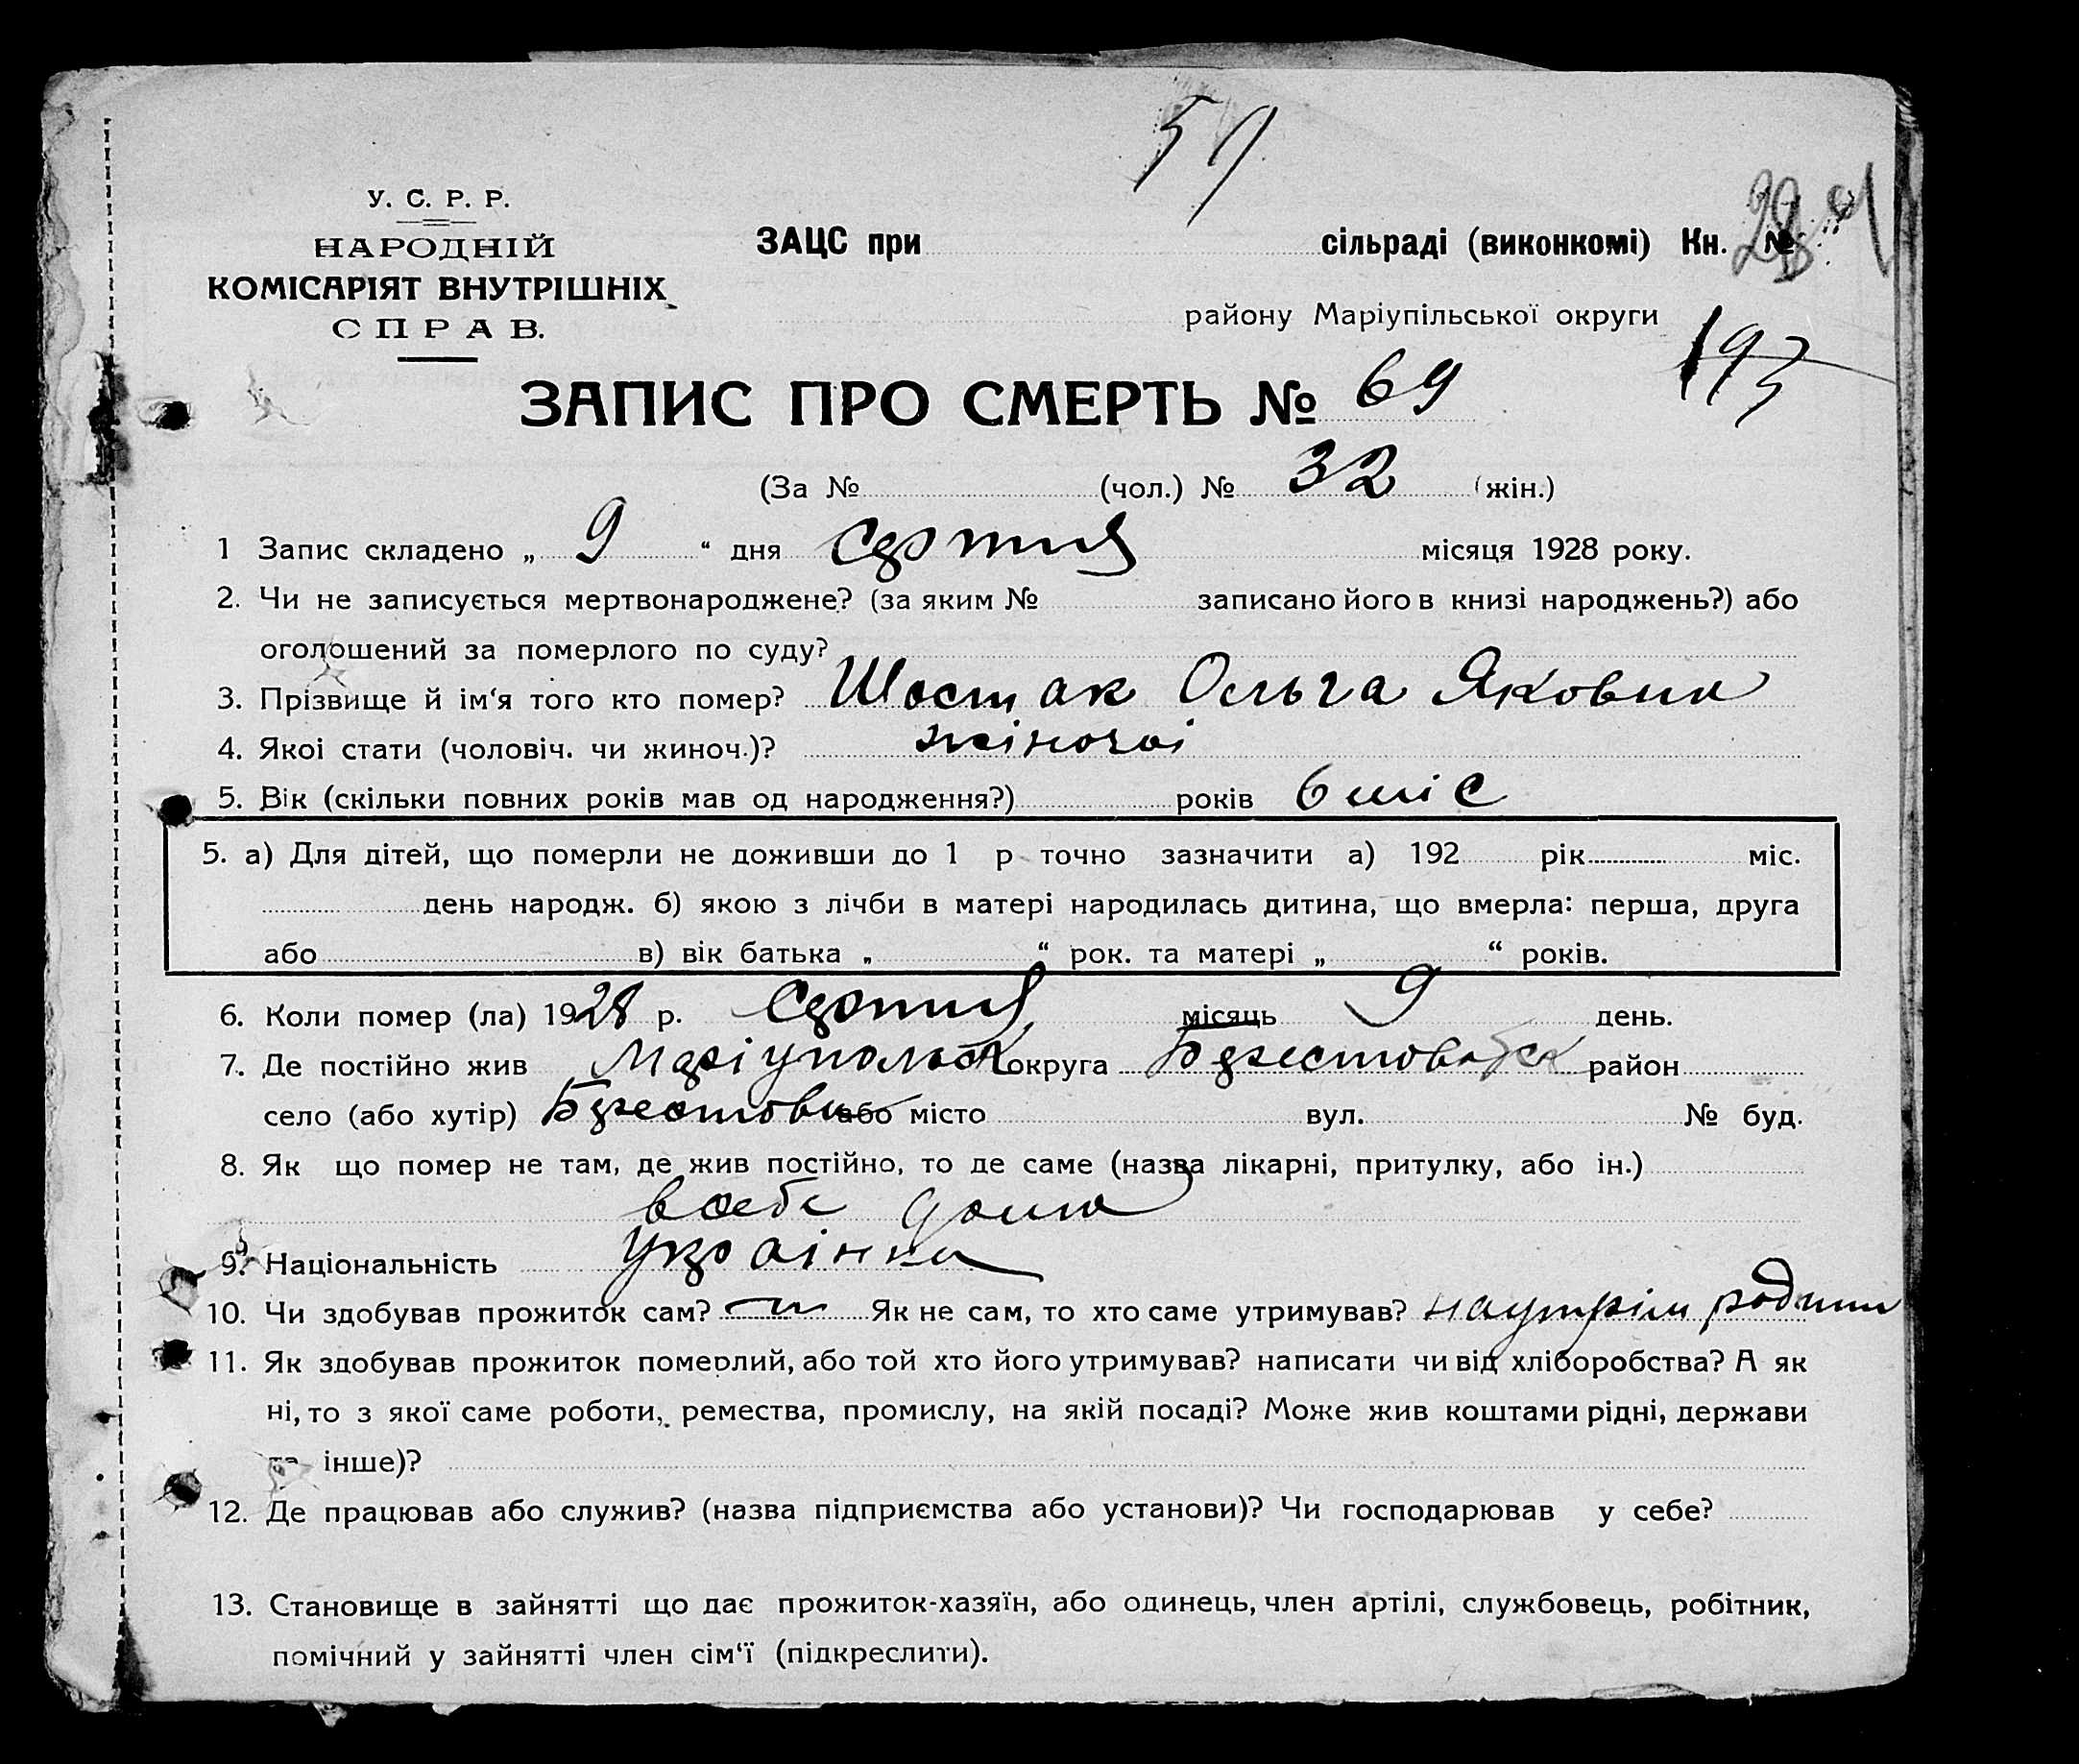 59
У. С. Р. Р.
НАРОДНІЙ
КОМІСАРІЯТ ВНУТРІШНІХ
СПРАВ.
ЗАЦС при сільраді (виконкомі) Кн. №
району Маріупільської округи
193
ЗАПИС ПРО СМЕРТЬ № 69
(За № (чол.) № 32 (жін.)
1 Запис складено „ 9 “ дня серпня місяця 1928 року.
2. Чи не записується мертвонароджене? (за яким № записано його в книзі народжень?) або
оголошений за померлого по суду?
3. Прізвище й ім‘я того кто помер? Шостак Ольга Яковна
4. Якоі стати (чоловіч. чи жиноч.)? жіночоі
5. Вік (скільки повних років мав од народження?) років 6 міс
5. а) Для дітей, що померли не доживши до 1 р точно зазначити а) 192 рік міс.
день народж. б) якою з лічби в матері народилась дитина, що вмерла: перша, друга
або в) вік батька „ “ рок. та матері „ “ років.
6. Коли помер (ла) 1928 р. серпня місяць 9 день.
7. Де постійно жив Маріупольск округа район
село (або хутір) або місто вул. № буд.
8. Як що помер не там, де жив постійно, то де саме (назва лікарні, притулку, або ін.)
дома
9. Національність Українка
10. Чи здобував прожиток сам? Як не сам, то хто саме утримував? на утрім родини
11. Як здобував прожиток померлий, або той хто його утримував? написати чи від хліборобства? А як
ні, то з якої саме роботи, ремества, промислу, на якій посаді? Може жив коштами рідні, держави
та інше)?
12. Де працював або служив? (назва підприємства або установи)? Чи господарював у себе?
13. Становище в зайнятті що дає прожиток-хазяїн, або одинець, член артілі, службовець, робітник,
помічний у зайнятті член сім‘ї (підкреслити).